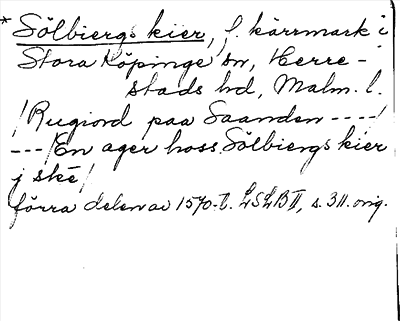 *Sölbiergs kier, f. kärrmark i
Stora Köpinge sn, Herre-
stads hd, Malm. l.
/Rugiord paa Saanden ----/
---/En ager hoss Sölbiergs kier
j skē/
förra delen av 1570-t. LSLB II, s. 311. orig.